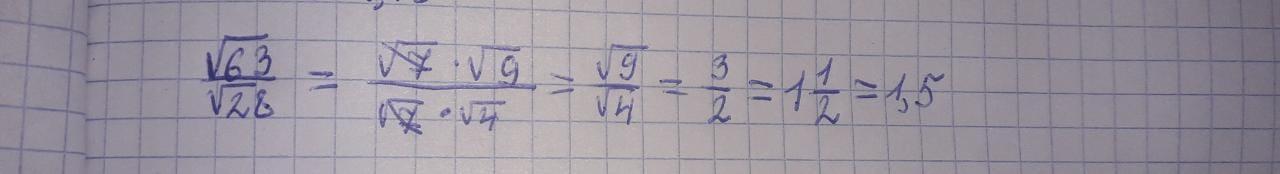 √63/√28 = √7·√9/√7·√4 = √9/√4 = 3/2 = 1 1/2 = 1,5